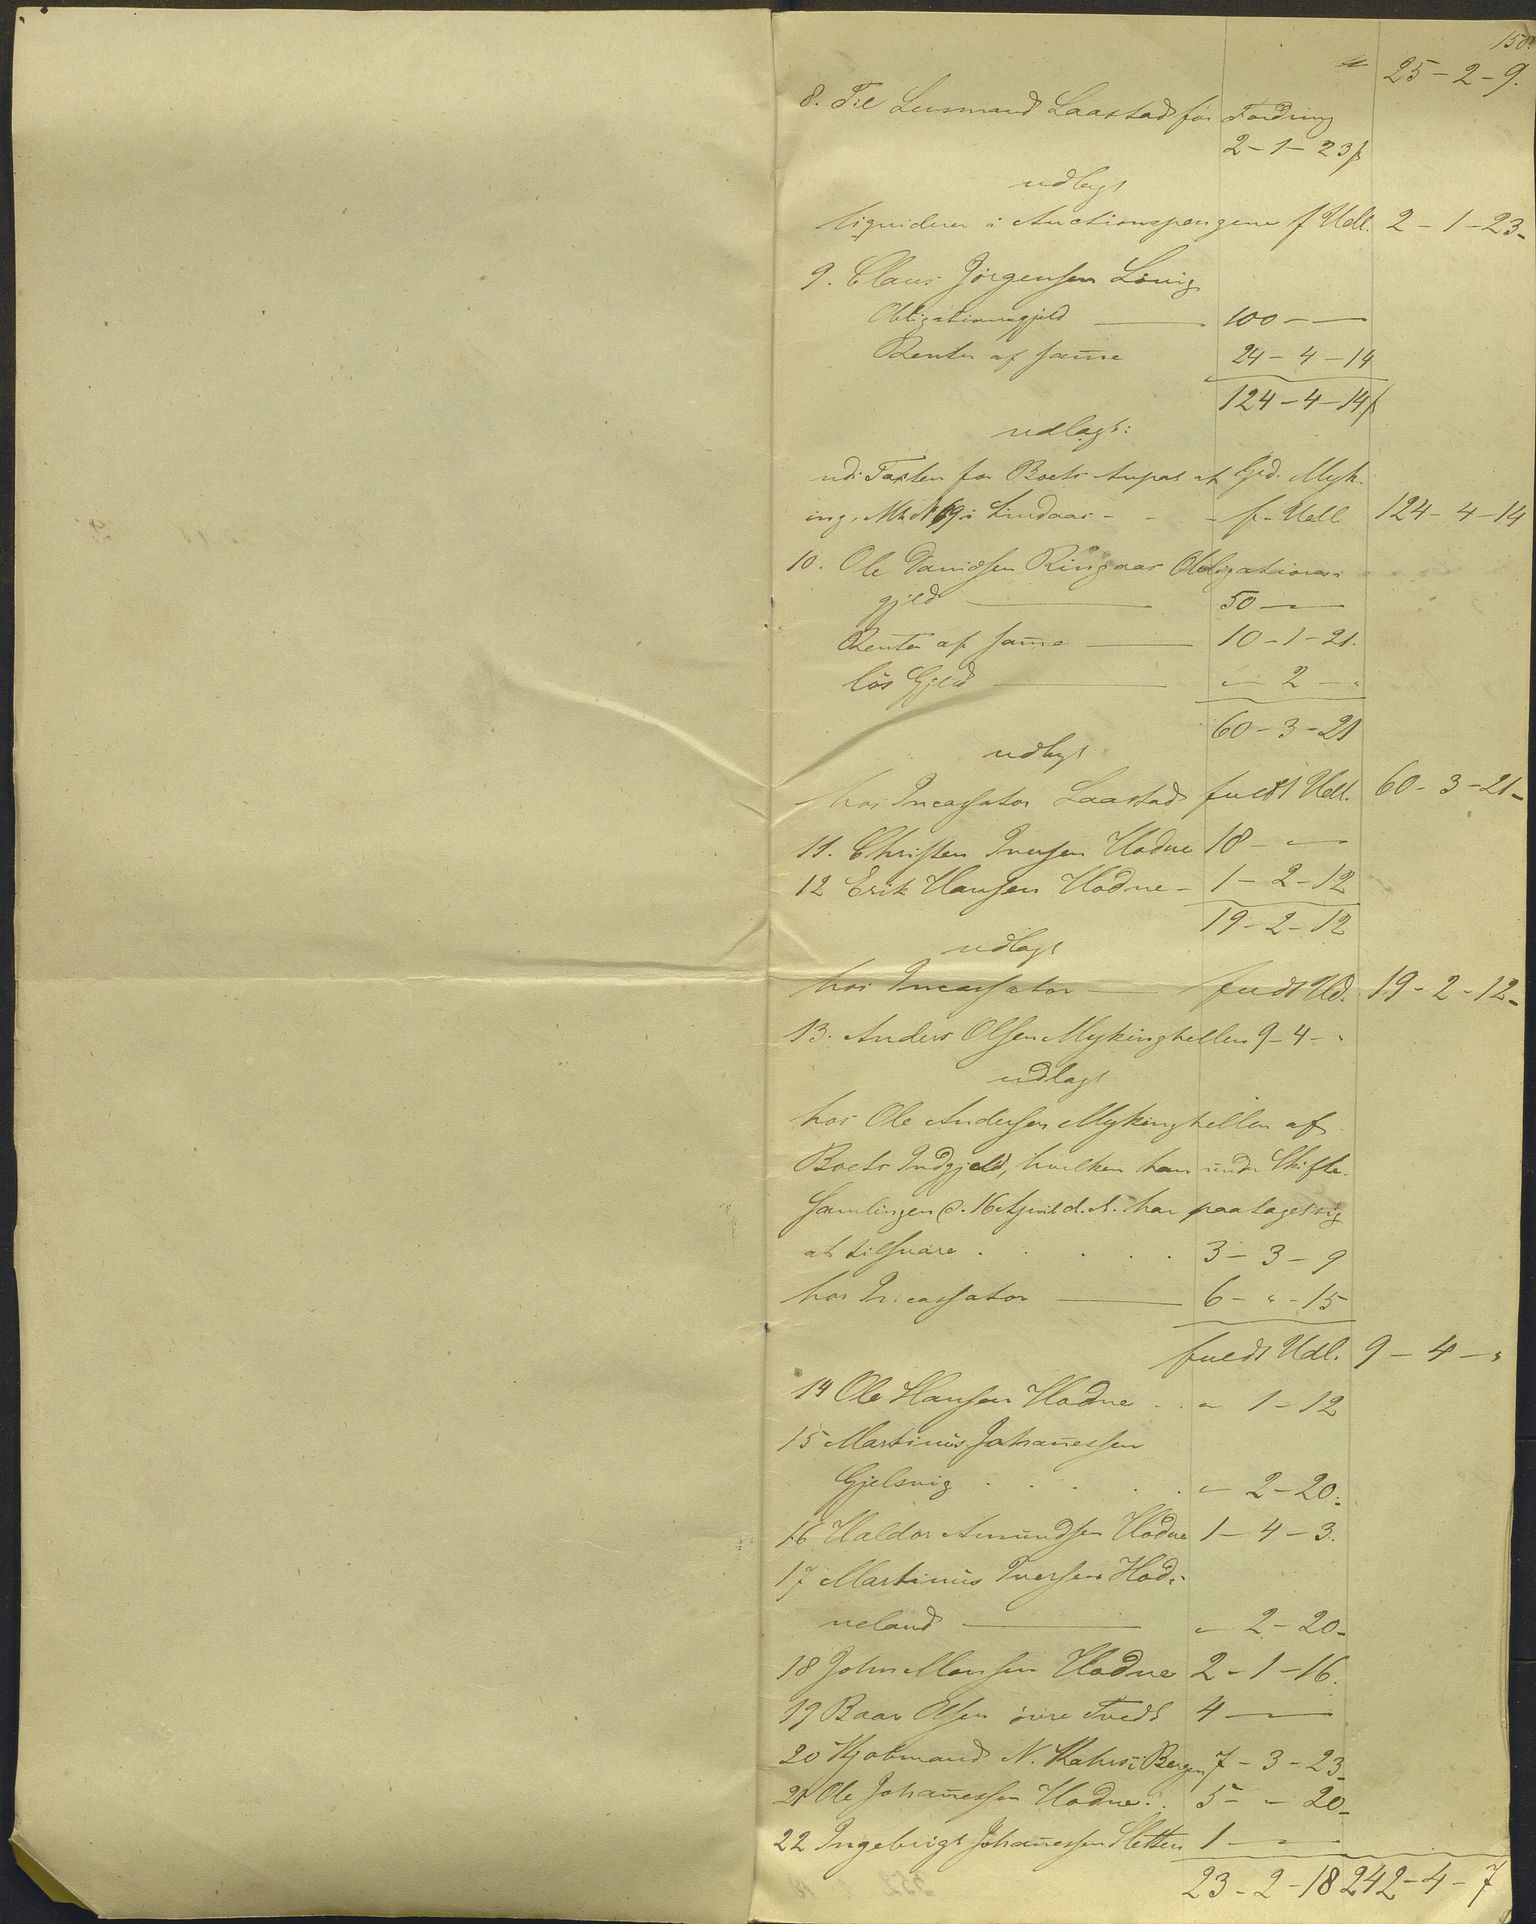 158
" 25 - 2 - 9.
8. Til Lensmand Laastad for Fordring
2 - 1 - 23 ß
udlagt
liqviderer i Auctionspengene f Udl. 2 - 1 - 23 -
9. Claus Jørgensen Lønig
Obligationsgjeld — 100 - —
Renter af same 24 - 4 - 14
124 - 4 - 14 ß
udlagt:
udi Taxten for Boets Anpart i Grd. Myk-
ing, Mk N 69 i Lindaas - - - f. Udl 124 - 4 - 14
10. Ole Danielsen Ringaas Obligations-
gjeld — 50 - —
Renter af same — 10 - 1 - 21.
løs Gjeld — " 2 - "
60 - 3 - 21
udlagt
hos Incassator Laastad fuldt Udl. 60 - 3 - 21 -
11. Christen Iversen Hodne 18 - —
12 Erik Hansen Hodne - 1 - 2 - 12
19 - 2 - 12
udlagt
hos Incassator — fuldt Ud. 19 - 2 - 12 -
13. Anders Olsen Mykinghellen 9 - 4 - "
udlagt
hos Ole Andersen Mykinghellen af
Boets Indgjeld, hvilken han under Skifte-
samlingen d. 16 April d. A. har paataget sig
at tilsvare . . . . . 3 - 3 - 9
hos Incassator — 6 - " - 15
fuldt Udl. 9 - 4 - "
14 Ole Hansen Hodne . . " 1 - 12
15 Martinus Johanessen
Gjelsvig . . . . . " 2 - 20.
16 Haldor Amundsen Hodne 1 - 4 - 3.
17 Martinus Iversen Hod-
neland — " 2 - 20 -
18 John Monsen Hodne 2 - 1 - 16.
19 Baar Olsen øvre Tvedt 4 - —
20 Kjøbmand N. Kahrs i Bergen 7 - 3 - 23 -
21 Ole Johanessen Hodne . . 5 - " 20 -
22 Ingebrigt Johanessen Sletten 1 - —
23 - 2 - 18 242 - 4 - 7